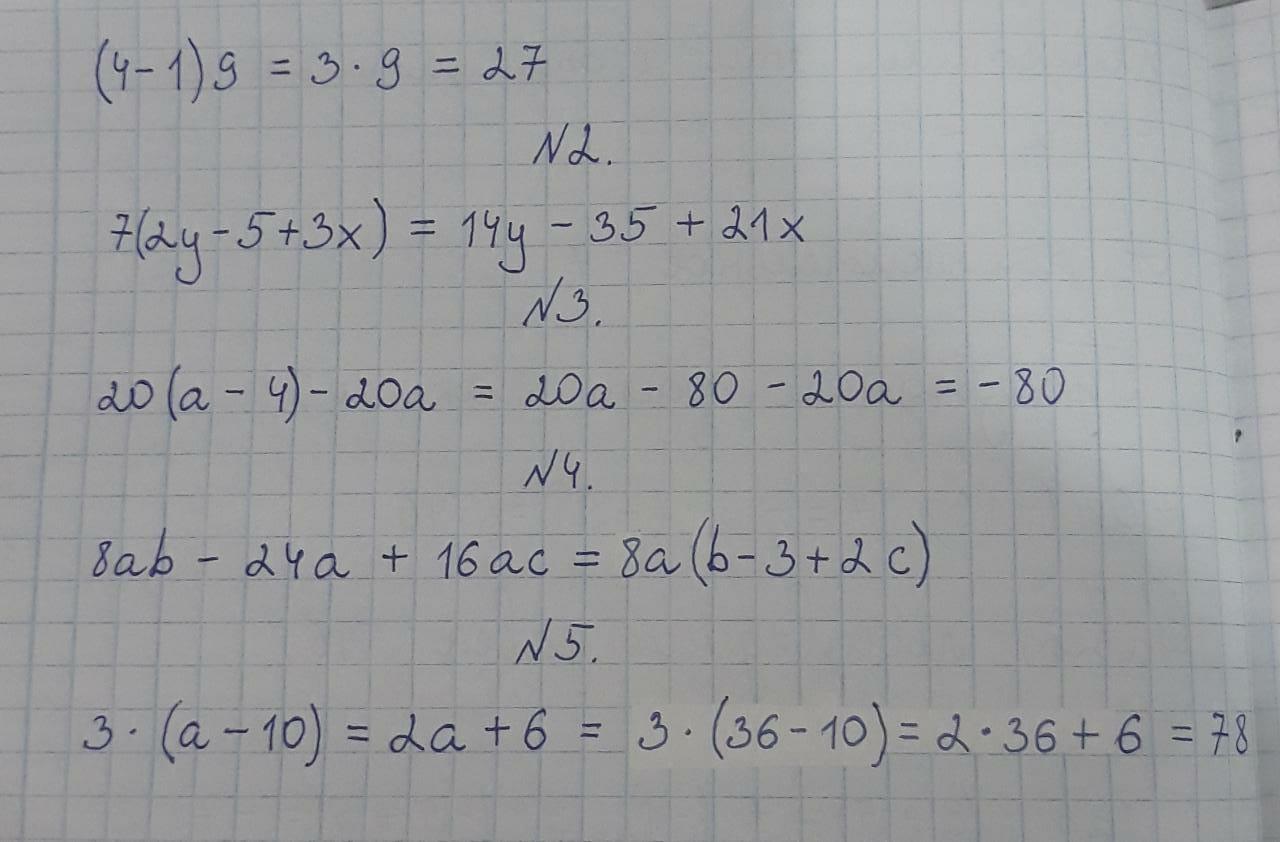 (4-1)9 = 3·9 = 27
N2.
7(2y-5+3x) = 14y - 35 + 21x
N3.
20(a - 4) - 20a = 20a - 80 - 20a = -80
N4.
8ab - 24a + 16ac = 8a(b-3+2c)
N5.
3·(a-10) = 2a+6 = 3·(36-10) = 2·36+6 = 78